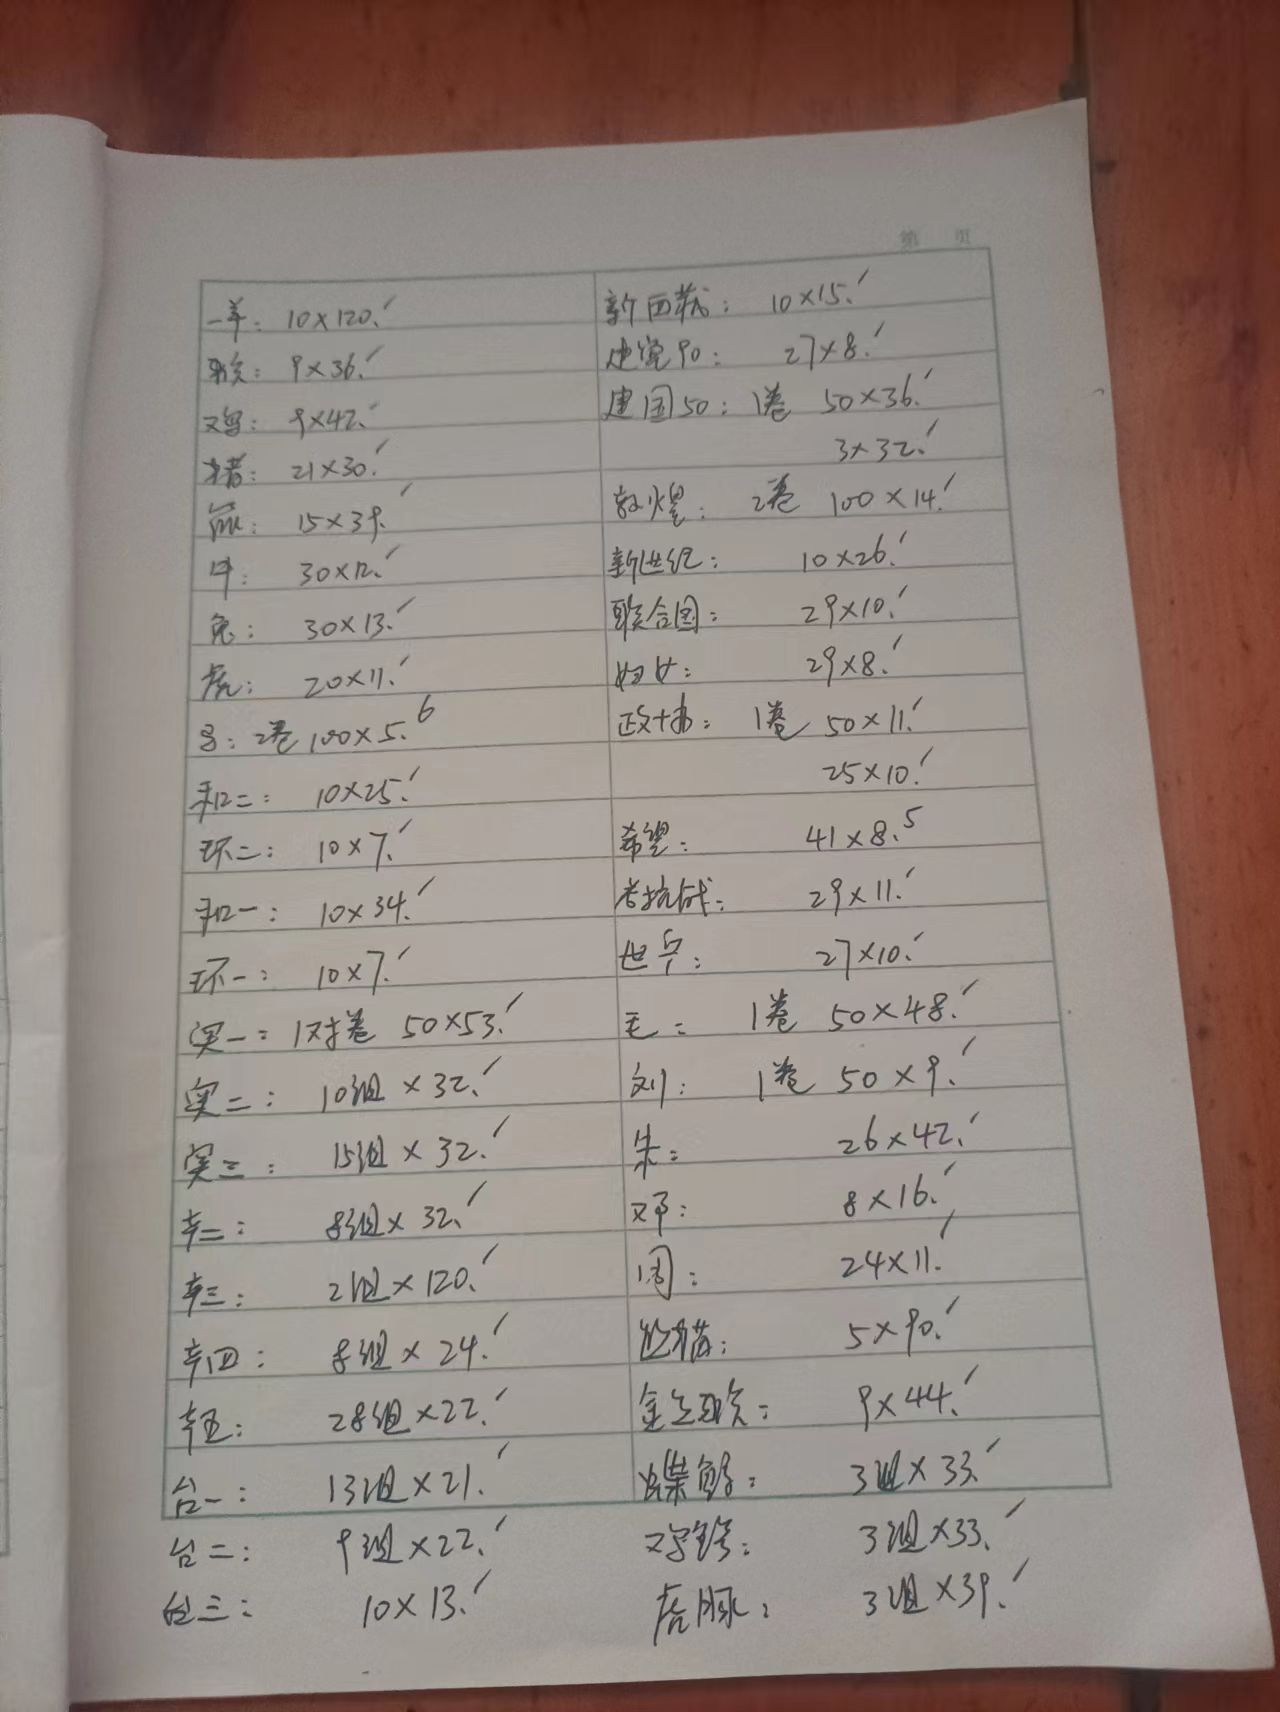 第 页
一羊: 10×120.'
猴: 9×36.'
鸡: 9×42.'
猪: 21×30.'
鼠: 15×39.'
牛: 30×12.'
兔: 30×13.'
虎: 20×11.'
2卷 100×5.6
和二: 10×25.'
环二: 10×7.'
和一: 10×34.'
环一: 10×7.'
奥一: 1对卷 50×53.'
奥二: 10组×32.'
奥三: 15组×32.'
辛二: 8组×32.'
辛三: 2组×120.'
辛四: 8组×24.'
辛五: 28组×22.'
台一: 13组×21.'
台二: 9组×22.'
台三: 10×13.'
新西藏: 10×15.'
建党90: 27×8.'
建国50: 1卷 50×36.'
3×32.'
敦煌: 2卷 100×14.'
新世纪: 10×26.'
联合国: 29×10.'
妇女: 29×8.'
政协: 1卷 50×11.'
25×10.'
希望: 41×8.5
抗战: 29×11.'
27×10.'
毛: 1卷 50×48.'
刘: 1卷 50×9.'
朱: 26×42.'
邓: 8×16.'
周: 24×11.'
熊猫: 5×90.'
金猴: 9×44.'
3组×33.'
3组×33.'
虎豚: 3组×39.'